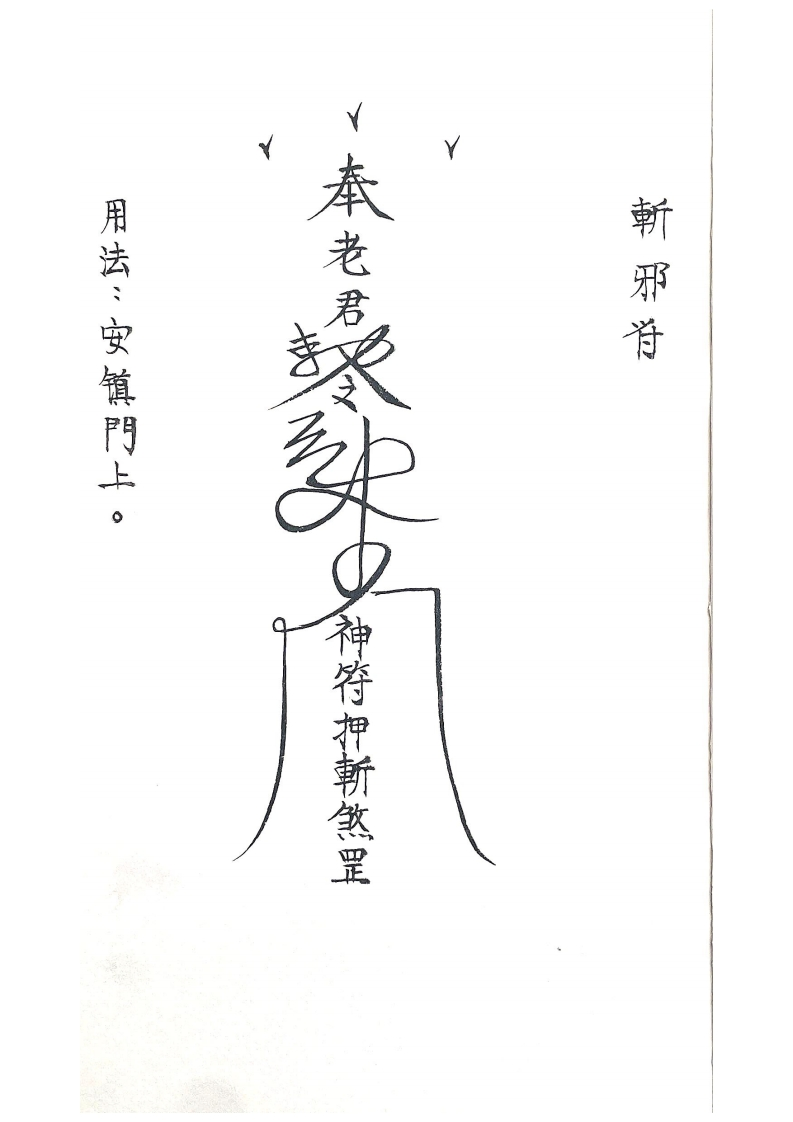 斬邪符
奉老君
神符押斬煞罡
用法：安镇門上。